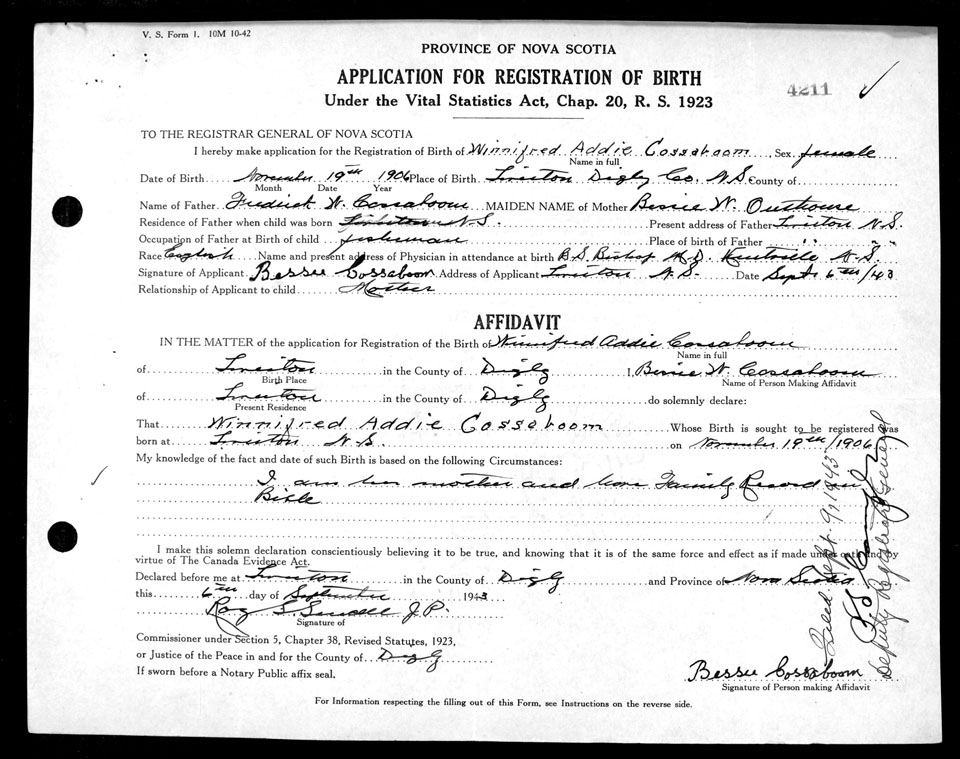 V. S. Form 1. 10M 10-42
PROVINCE OF NOVA SCOTIA
APPLICATION FOR REGISTRATION OF BIRTH
4211
Under the Vital Statistics Act, Chap. 20, R. S. 1923
TO THE REGISTRAR GENERAL OF NOVA SCOTIA
I hereby make application for the Registration of Birth of Winnifred Addie Cossaboom, Sex female
Name in full
Date of Birth November 19th 1906 Place of Birth Tiverton Digby Co. N.S. County of
Month Date Year
Name of Father Fredrick W. Cossaboom MAIDEN NAME of Mother Bessie W. Outhouse
Residence of Father when child was born Tiverton N.S. Present address of Father Tiverton N.S.
Occupation of Father at Birth of child fisherman Place of birth of Father " "
Race English Name and present address of Physician in attendance at birth B.S. Bishop M.D. Kentville N.S.
Signature of Applicant Bessie Cossaboom Address of Applicant Tiverton N.S. Date Sept 6th/43
Relationship of Applicant to child Mother
AFFIDAVIT
IN THE MATTER of the application for Registration of the Birth of Winnifred Addie Cossaboom
Name in full
of Tiverton in the County of Digby I, Bessie W. Cossaboom
Birth Place Name of Person Making Affidavit
of Tiverton in the County of Digby do solemnly declare:
Present Residence
That Winnifred Addie Cossaboom Whose Birth is sought to be registered was
born at Tiverton N.S. on November 19th/1906
My knowledge of the fact and date of such Birth is based on the following Circumstances:
I am her mother and have Family Record in
Bible
I make this solemn declaration conscientiously believing it to be true, and knowing that it is of the same force and effect as if made under oath and by
virtue of The Canada Evidence Act.
Declared before me at Tiverton in the County of Digby and Province of Nova Scotia
this 6th day of September 1943
Roy S. J.P.
Signature of
Commissioner under Section 5, Chapter 38, Revised Statutes, 1923,
or Justice of the Peace in and for the County of Digby
If sworn before a Notary Public affix seal.
Bessie Cossaboom
Signature of Person making Affidavit
For Information respecting the filling out of this Form, see Instructions on the reverse side.
Filed Sept. 9, 1943
Deputy Registrar General